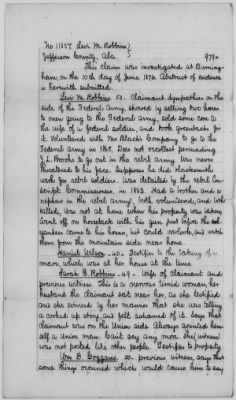 No 11657 Levi M. Robbins
Jefferson County, Ala. 979
This claim was investigated at Birming-
ham, on the 10th day of June 1876. Abstract of evidence
is herewith submitted.
Levi M. Robbins 53. Claimant. Sympathies on the
side of the Federal Army, showed by selling two horses
to men going to the Federal Army, sold some corn to
the wife of a federal soldier, and took greenbacks for
it. Volunteered with to go to the
Federal Army in 1862. Does not recollect persuading
J.L. Brooks to go out in the rebel army. Was never
threatened to his face. Supposes he did blacksmith
work for rebel soldiers. Was detailed by the rebel Con-
script Commissioner, in 1863. Had a brother and a
nephew in the rebel army, both volunteered, and both
killed. Was not at home when his property was taken
went off on horseback with his gun, just before the
yankees came to his house, but could overlook, and watch
them from the mountain side near home.
Harriet Wilson 40. Testifies to the taking of a
mare, which was at her house at the time
Sarah B. Robbins 49 Wife of claimant and
previous witness. This is a nervous timid woman, her
husband the claimant sat near her, as she testified
and she evinced by her manner that she was telling
a cooked up story, and felt ashamed of it. Says that
claimant was on the Union side. Always counted him-
self a Union man. Can't say any more. She (witness)
was not posted like other people. Testifies to property
Wm B. Scoggins 50. previous witness, says that
some things occurred which would cause him to say